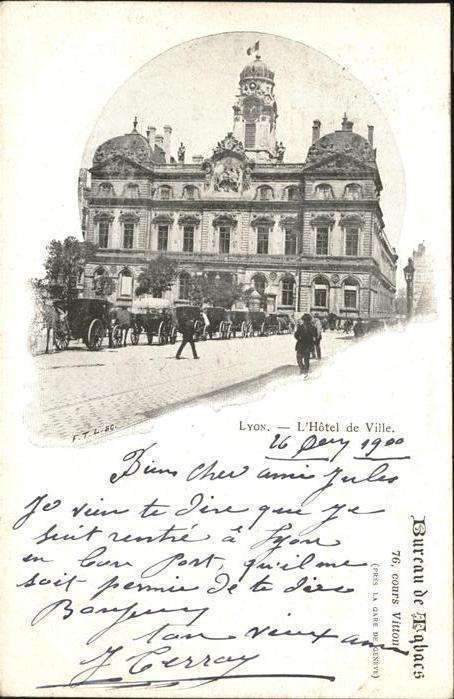 LYON. — L'Hôtel de Ville.
F. T. L. SC.
26 1900
Bien cher ami Jules
Je vien te dire que je
suit rentré à Lyon
en bon Port, qu'il me
soit permie de te dire
Bonjour
ton vieux ami
J Terray
Bureau de Tabacs
76, cours Vitton
(PRÈS LA GARE DE GENÈVE)